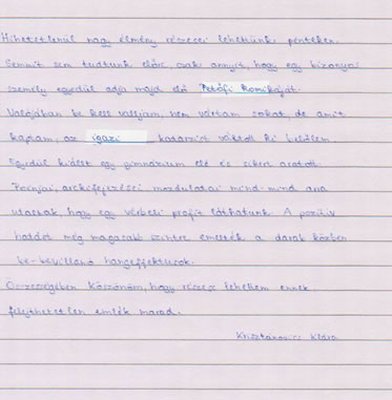 Hihetetlenül nagy élmény részesei lehettünk pénteken.
Semmit sem tudtunk előre, csak annyit, hogy egy bizonyos
személy egyedül adja majd elő Petőfi komikáját.
Valójában be kell valljam, nem vártam sokat de amit
kaptam, az igazi katarzist váltott ki belőlem
Egyedül kiállt egy gimnázium elé és sikert aratott
arckifejezései mozdulatai mind-mind arra
utaltak, hogy egy vérbeli profit láthatunk. A pozitív
hatást még magasabb szintre emelték a darab közben
be-bevillanó hangeffektusok.
Összességében köszönöm, hogy részese lehettem ennek
felejthetetlen emlék marad.
Klára